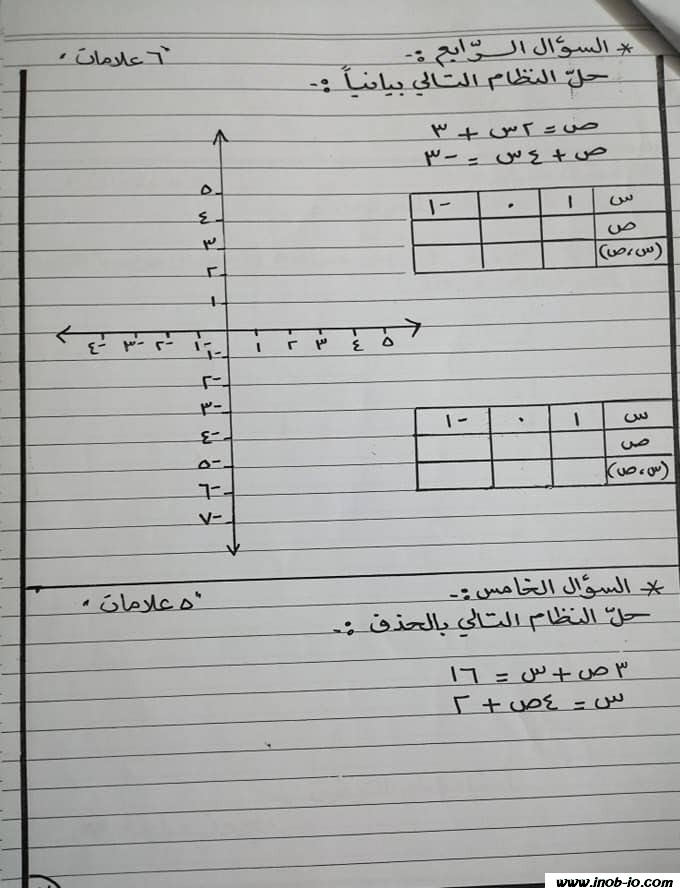 * السؤال الرّابع :-
"٦ علامات"
حلّ النظام التالي بيانياً :-
ص = ٢س + ٣
ص + ٤س = -٣
س ١ ٠ -١
ص
(س،ص)
٥
٤
٣
٢
١
-٤ -٣ -٢ -١ ١ ٢ ٣ ٤ ٥
-١
-٢
-٣
-٤
-٥
-٦
-٧
س ١ ٠ -١
ص
(س،ص)
* السؤال الخامس :-
"٥ علامات"
حلّ النظام التالي بالحذف :-
٣ص + س = ١٦
س = ٤ص + ٢
www.inob-jo.com